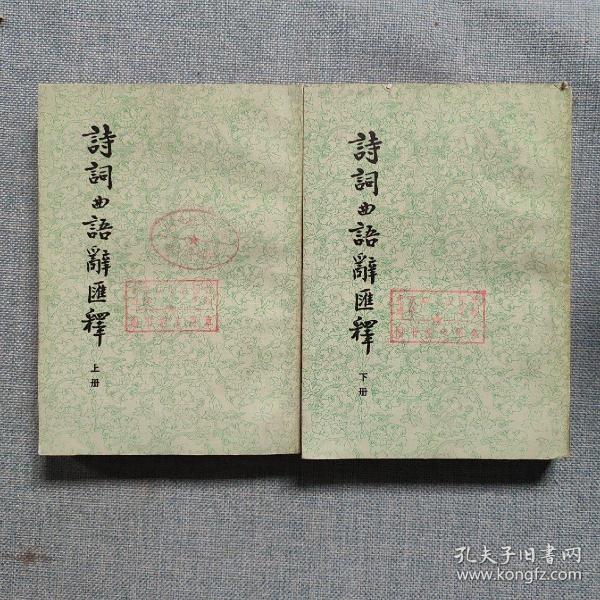 詩詞曲語辭匯釋
上册
詩詞曲語辭匯釋
下册
孔夫子旧書网
www.kongfz.com